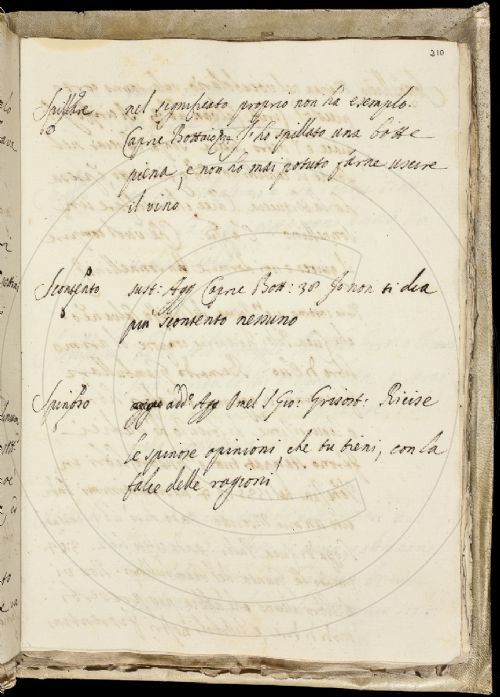 210
Spillare nel significato proprio non ha esemplo.
Capric Bottaio Io ho spillato una botte
piena, e non ho mai potuto farne uscire
il vino
Scontento sust: Agg Capric Bott: 38 Io non ti dea
più scontento nessuno
Spinoso add. Agg Omel S Gio: Grisost: Ricise
le spinose opinioni che tu tieni, con la
falce delle ragioni